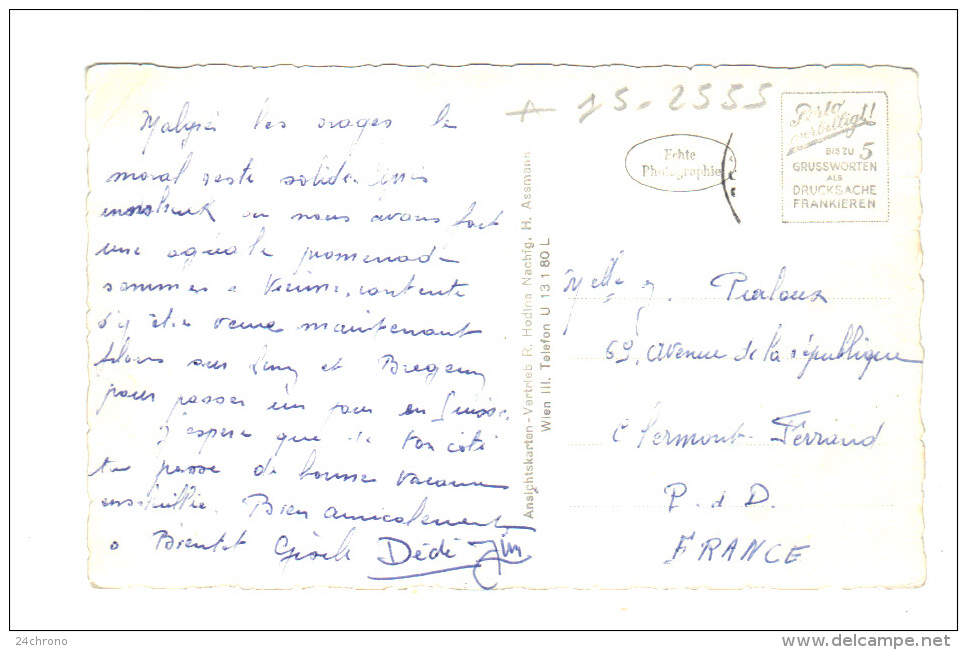 Malgré les orages le
moral reste solide
où nous avons fait
une agréable promenade
sommes à Vienne, contente
d'y être venue maintenant
filons sur Linz et Bregenz
pour passer un jour en Suisse.
J'espère que de ton côté
tu passe de bonnes vacances
ensoleillée. Bien amicalement
a Bientot Gisèle Dédé
15-2555
Echte
Photographie
Porto
verbilligt!
BIS ZU 5
GRUSSWORTEN
ALS
DRUCKSACHE
FRANKIEREN
Ansichtskarten-Vertrieb R. Hodina Nachfg. H. Assmann
Wien III. Telefon U 13 1 80 L
Melle
59, avenue de la république
Clermont-Ferrand
P. d D.
FRANCE
24chrono
delcampe.net